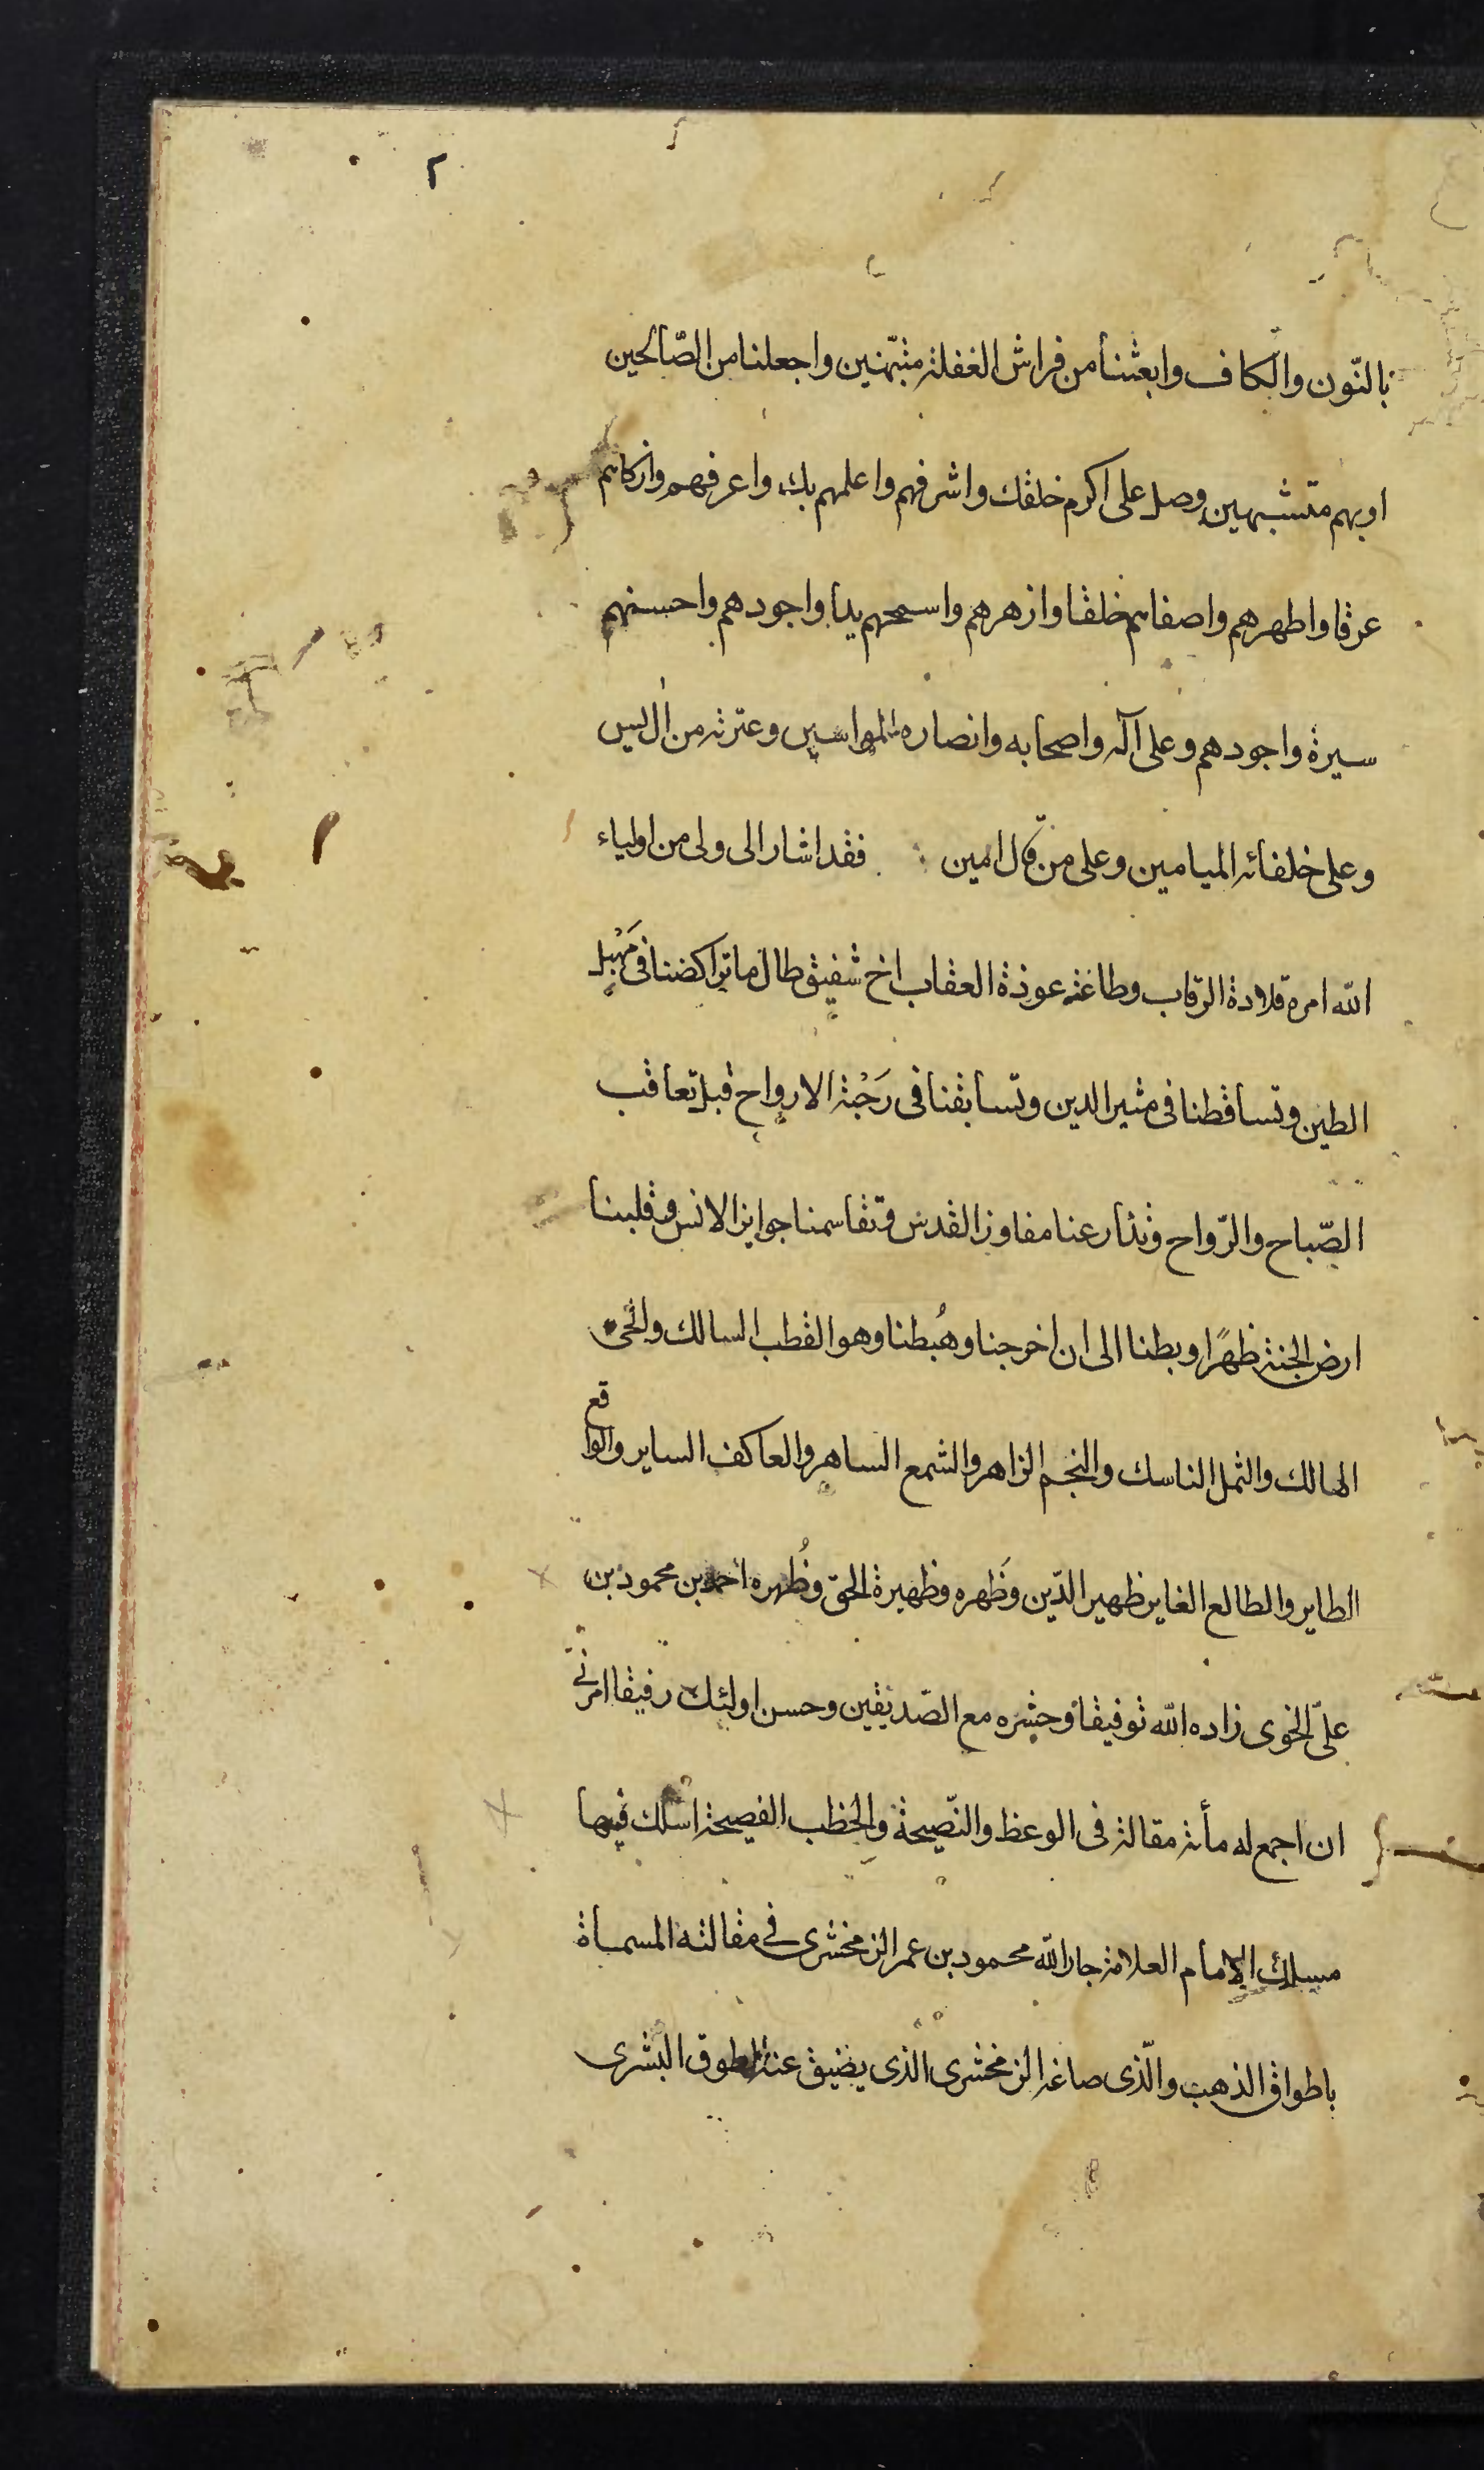 ٢
بالنّون والكاف وابعثنا من فراش الغفلة متنبّهين واجعلنا من الصّالحين
او بهم متشبهين وصل على اكرم خلقك واشرفهم واعلمهم بك واعرفهم وازكاهم
عرقا واطهرهم واصفاهم خلقا وازهرهم واسمحهم يدا واجودهم واحسنهم
سيرة واجودهم وعلى آله واصحابه وانصاره المواسين وعترته من ال يس
وعلى خلفائه الميامين وعلى من قال امين فقد اشار الى ولى من اولياء
الله امره قلادة الرّقاب وطاعته عوذة العقاب اخ شفيق طال ما تراكضنا فى مَهْبل
الطين وتساقطنا فى مثير الدين وتسابقنا فى رَحْبة الارواح قبل تعاقب
الصّباح والرّواح وتذارعنا مفاوز القدس وتقاسمنا جوايز الانس وقلبنا
ارض الجنة ظهرًا وبطنا الى ان اخرجنا وهُبطنا وهو القطب السالك والحى
الهالك والثمل الناسك والنجم الزاهر والشمع الساهر والعاكف الساير والواقع
الطاير والطالع الغاير ظهير الدّين وظَهره وظهيرة الحق وظُهره احمد بن محمود بن
علىّ الخوى زاده الله توفيقا وحشره مع الصّديقين وحسن اولئك رفيقا امرنى
ان اجمع له مأئة مقالة فى الوعظ والنّصيحة والخطب الفصيحة اسلك فيها
مسلك الامام العلامة جار الله محمود بن عمر الزمخشرى فى مقالته المسماة
باطواق الذهب والّذى صاغه الزمخشرى الذى يضيق عنه الطوق البشرى